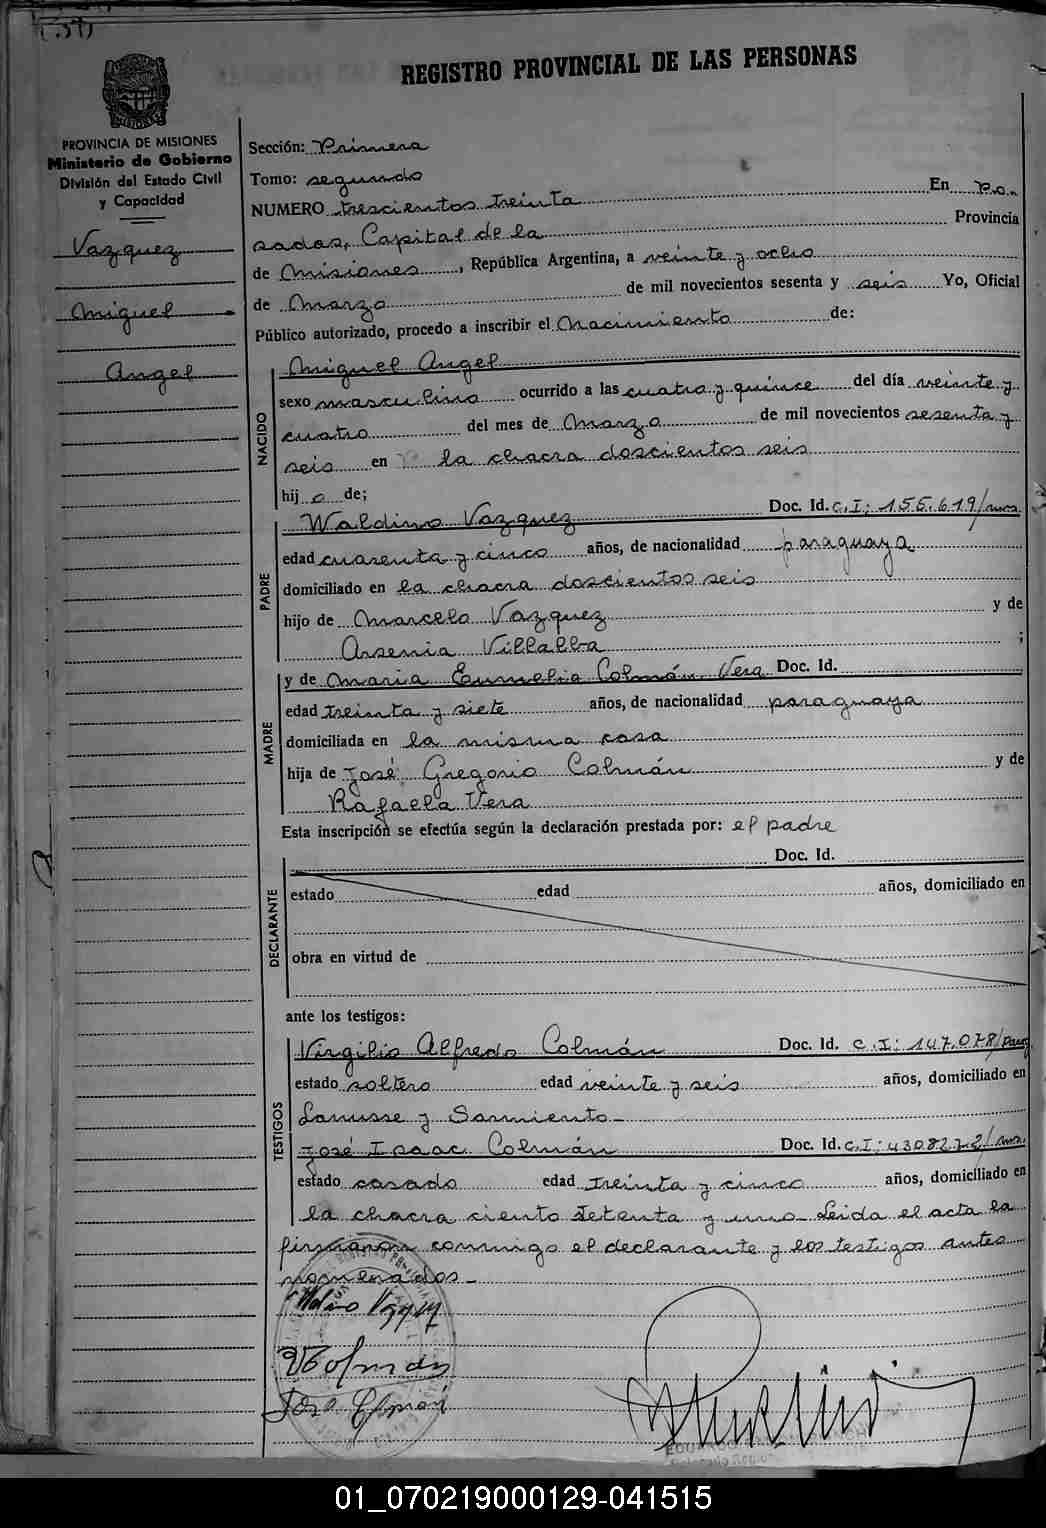 REGISTRO PROVINCIAL DE LAS PERSONAS
PROVINCIA DE MISIONES
Ministerio de Gobierno
División del Estado Civil
y Capacidad
Vazquez
Miguel
Angel
Sección: Primera
Tomo: segundo
NUMERO trescientos treinta En Po-
sadas, Capital de la Provincia
de Misiones, República Argentina, a veinte y ocho
de Marzo de mil novecientos sesenta y seis Yo, Oficial
Público autorizado, procedo a inscribir el Nacimiento de:
NACIDO
Miguel Angel
sexo masculino ocurrido a las cuatro y quince del día veinte y
cuatro del mes de Marzo de mil novecientos sesenta y
seis en la chacra doscientos seis
hijo de;
PADRE
Waldino Vazquez Doc. Id. C.I: 155.619/mnes
edad cuarenta y cinco años, de nacionalidad paraguaya
domiciliado en la chacra doscientos seis
hijo de Marcelo Vazquez y de
Arsenia Villalba ;
MADRE
y de Maria Eumelia Colmán Vera Doc. Id.
edad treinta y siete años, de nacionalidad paraguaya
domiciliada en la misma casa
hija de José Gregorio Colmán y de
Rafaela Vera
Esta inscripción se efectúa según la declaración prestada por: el padre
Doc. Id.
DECLARANTE
estado edad años, domiciliado en
obra en virtud de
ante los testigos:
TESTIGOS
Virgilio Alfredo Colmán Doc. Id. C.I: 147.078/
estado soltero edad veinte y seis años, domiciliado en
Lanusse y Sarmiento-
José Isaac Colmán Doc. Id. C.I: 430827.2/mnes.
estado casado edad treinta y cinco años, domiciliado en
la chacra ciento setenta y uno- Leida el acta la
firmaron conmigo el declarante y los testigos antes
nomenados-
VColmán
José Colmán
01_070219000129-041515